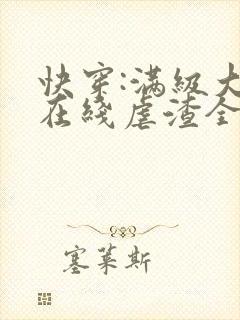 快穿:满级大
在线虐渣全
塞莱斯